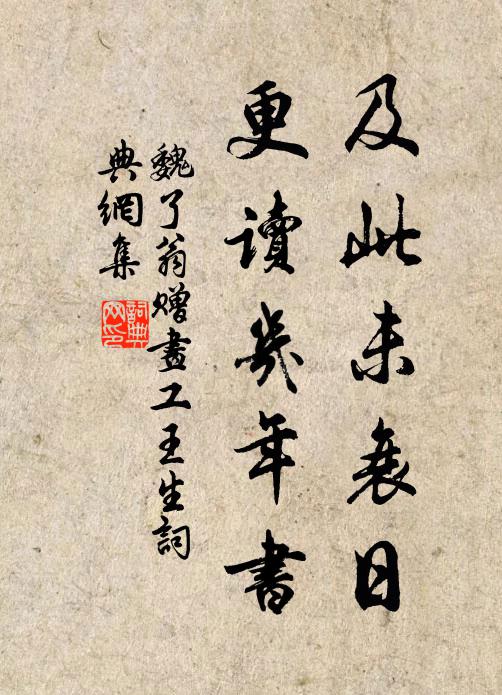 及此未衰日
更讀幾年書
魏了翁贈畫工王生詞
典網集
詞典网印